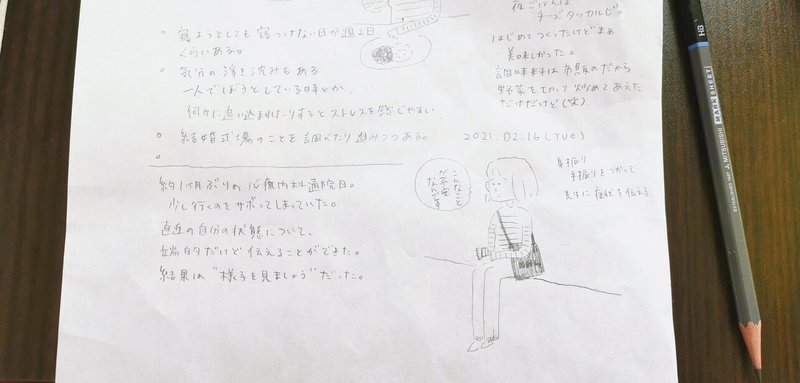 夜ごはんは
チーズタッカルビ。
はじめてつくったけどまあ
美味しかった。
調味料は市販のだから
野菜を切って炒めてあえた
だけだけど(笑)
寝ようとしても寝つけない日が週2日
くらいある。
気分の浮き沈みもある
一人でぼうとしている時とか、
何かに追い込まれたりするとストレスを感じやすい
結婚式場のことを調べたり進みつつある。
2021.02.16(TUE)
約1ヶ月ぶりの心療内科通院日。
少し行くのをサボってしまっていた。
直近の自分の状態について、
端的だけど伝えることができた。
結果は“様子を見ましょう”だった。
こんなこと
が不安
なんです
身振り
手振りをつかって
先生に症状を伝える
HB
MARKSHEET
MITSUBISHI